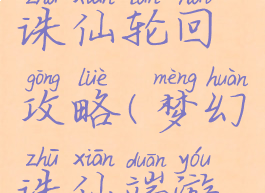 诛仙轮回
gōng lüè mèng huàn
攻略(梦幻
zhū xiān duān yóu
诛仙端游